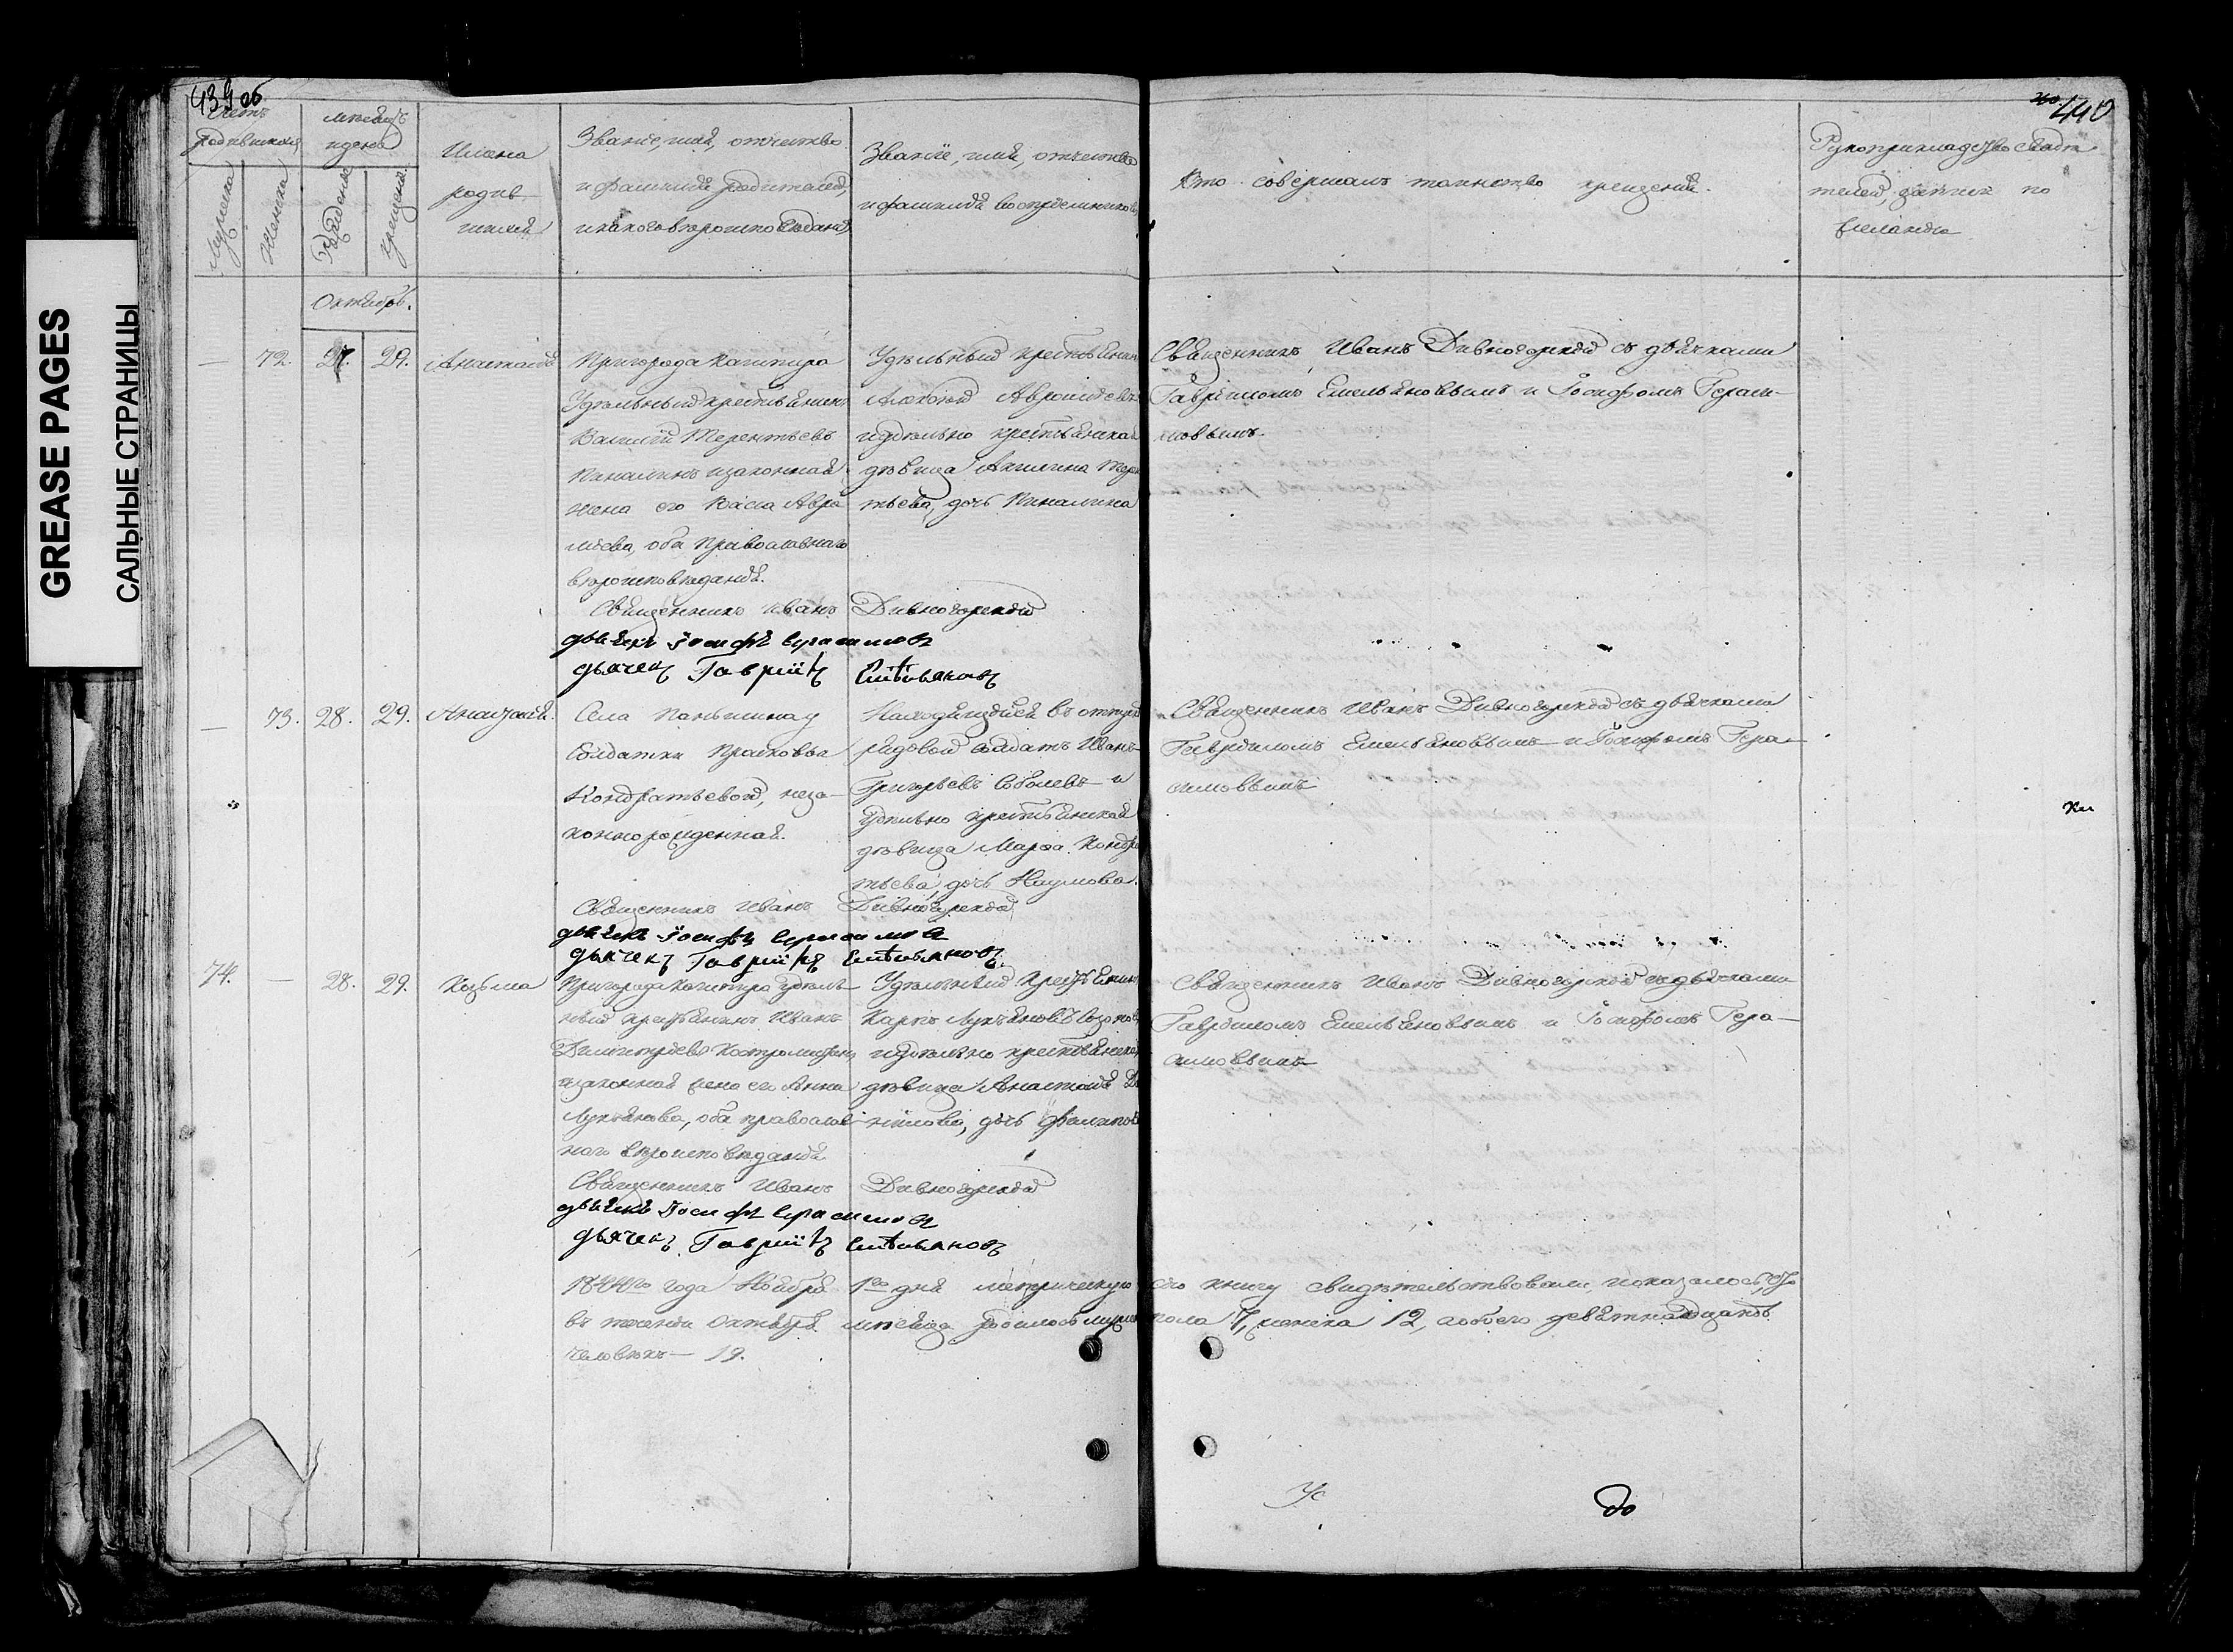 GREASE PAGES
САЛЬНЫЕ СТРАНИЦЫ
439 об
440
Счетъ родившихся
Мужска
Женска
месяцъ и день
Рожденія
Крещенія
Имена
родив
шихся
Званіе, имя, отчество
и фамилія родителей,
и какого вероисповеданія
Званіе, имя, отчество
и фамилія воспреемников
Кто совершалъ таинство крещенія.
Рукоприкладство свидѣ
телей записи по
желанію
Октябрь.
— 72. 27. 29. Анастасія
Пригорода Кашпира
Удѣльный крестьянинъ
Василій Терентьевъ
Пиналинъ и законная
жена его Васса Авра
міева, оба Православнаго
вѣроисповѣданія.
Удѣльный крестьянин
Алексей Аврамиевъ
и удѣльно крестьянская
дѣвица Акилина Терен
тьева, дочь Пиналина
Священникъ Иванъ Дивногорскій съ дьячками
Гавріиломъ Емельяновымъ и Іосифомъ Герасимовымъ.
Священникъ Иванъ Дивногорскій
дьячекъ Іосифъ Герасимовъ
дьячекъ Гавріилъ Емельяновъ
— 73. 28. 29. Анастасія.
Села Паньшина у
Солдатки Прасковьи
Кондратьевой, неза-
коннорожденная.
Находящійся въ отпуск
рядовой солдатъ Иванъ
Григорьевъ Соболевъ и
Удѣльно крестьянская
дѣвица Марѳа Кондра
тьева, дочь Наумова.
Священникъ Иванъ Дивногорскій съ дьячками
Гавріиломъ Емельяновымъ и Іосифомъ Гера-
симовымъ
Священникъ Иванъ Дивногорскій
дьячекъ Іосифъ Герасимовъ
дьячекъ Гавріилъ Емельяновъ
74. — 28. 29. Козьма
Пригорода Кашпира удѣль-
ный крестьянинъ Иванъ
Димитріевъ Костромитинъ
и законная жена его Анна
Лукьянова, оба православ-
наго вѣроисповѣданія
Удѣльный Крестьянин
Карпъ Лукьяновъ
и удѣльно крестьянская
дѣвица Анастасія Да
нилова, дочь Филипова
Священникъ Иванъ Дивногорскій съ дьячками
Гавріиломъ Емельяновымъ и Іосифомъ Гера-
симовымъ
Священникъ Иванъ Дивногорскій
дьячекъ Іосифъ Герасимовъ
дьячекъ Гавріилъ Емельяновъ
1844го года Ноября 1го дня метрическую сію книгу свидѣтельствовали, показалось, что
въ теченіи Октября мѣсяца родилось мужска пола 7, женска 12, а обоего девятнадцать
человѣкъ — 19.